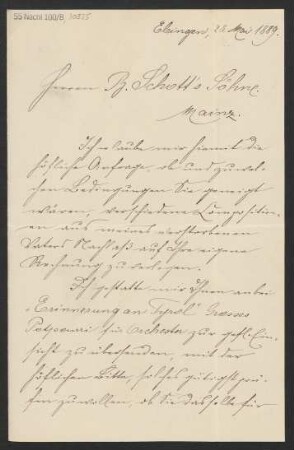 55 Nachl 100/B, 10855
Ebingen, 28 Mai 1889.
Herren B. Schott's Söhne.
Mainz.
Ich erlaube mir hiemit die
höfliche Anfrage, ob und zu wel-
chen Bedingungen Sie geneigt
wären, verschiedene Compositio-
nen aus meines verstorbenen
Vaters Nachlaß auf Ihre eigene
Rechnung zu verlegen.
Ich gestatte mir Ihnen anbei
„Erinnerung an Tyrol" Grosses
Potpourri für Orchester zur gefl. Ein-
sicht zu übersenden, mit der
höflichen Bitte, solches gütigst prü-
fen zu wollen, ob Sie dasselbe für